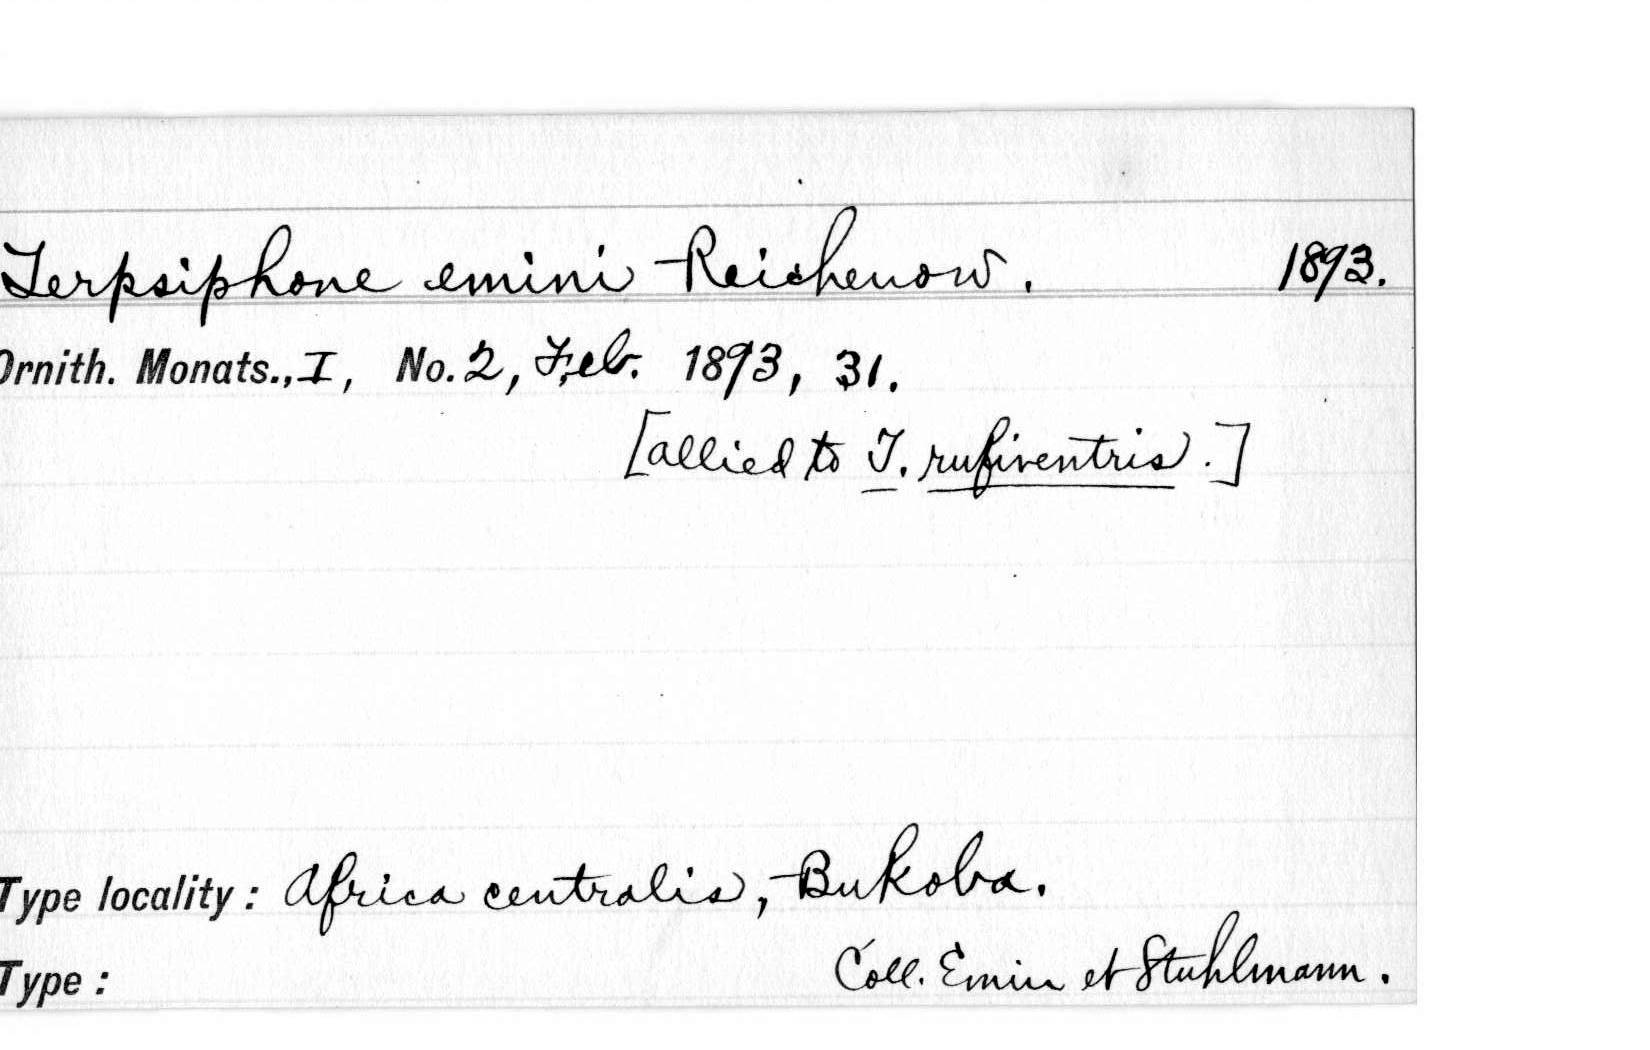 Terpsiphone emini Reichenow. 1893.
Ornith. Monats., I, No. 2, Feb. 1893, 31.
[allied to T. rufiventris.]
Type locality: Africa centralis, Bukoba.
Type: Coll. Emin et Stuhlmann.